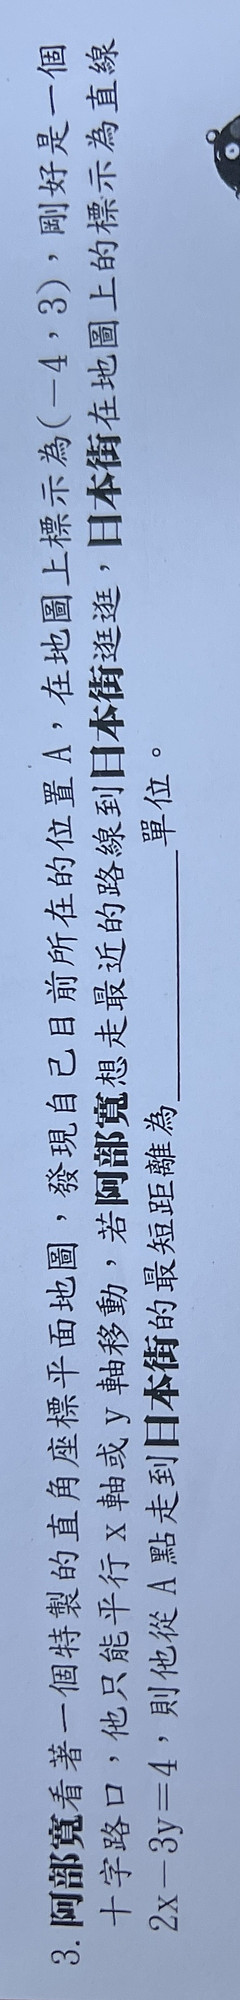 3. 阿部寬看著一個特製的直角座標平面地圖，發現自己目前所在的位置 A，在地圖上標示為(－4，3)，剛好是一個
十字路口，他只能平行 x 軸或 y 軸移動，若阿部寬想走最近的路線到日本街逛逛，日本街在地圖上的標示為直線
2x－3y＝4，則他從 A 點走到日本街的最短距離為＿＿＿＿＿＿單位。